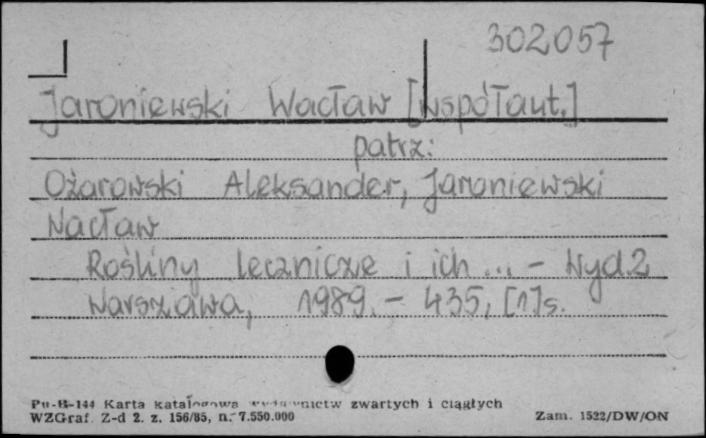 302057
Jaroniewski Wacław [współaut.]
patrz:
Ożarowski Aleksander, Jaroniewski
Wacław
Rośliny lecznicze i ich ... - Wyd. 2
Warszawa, 1989. - 435, [1] s.
Pu-B-144 Karta katalogowa wydawnictw zwartych i ciągłych
WZGraf. Z-d 2. z. 156/85, n. 7.550.000
Zam. 1522/DW/ON